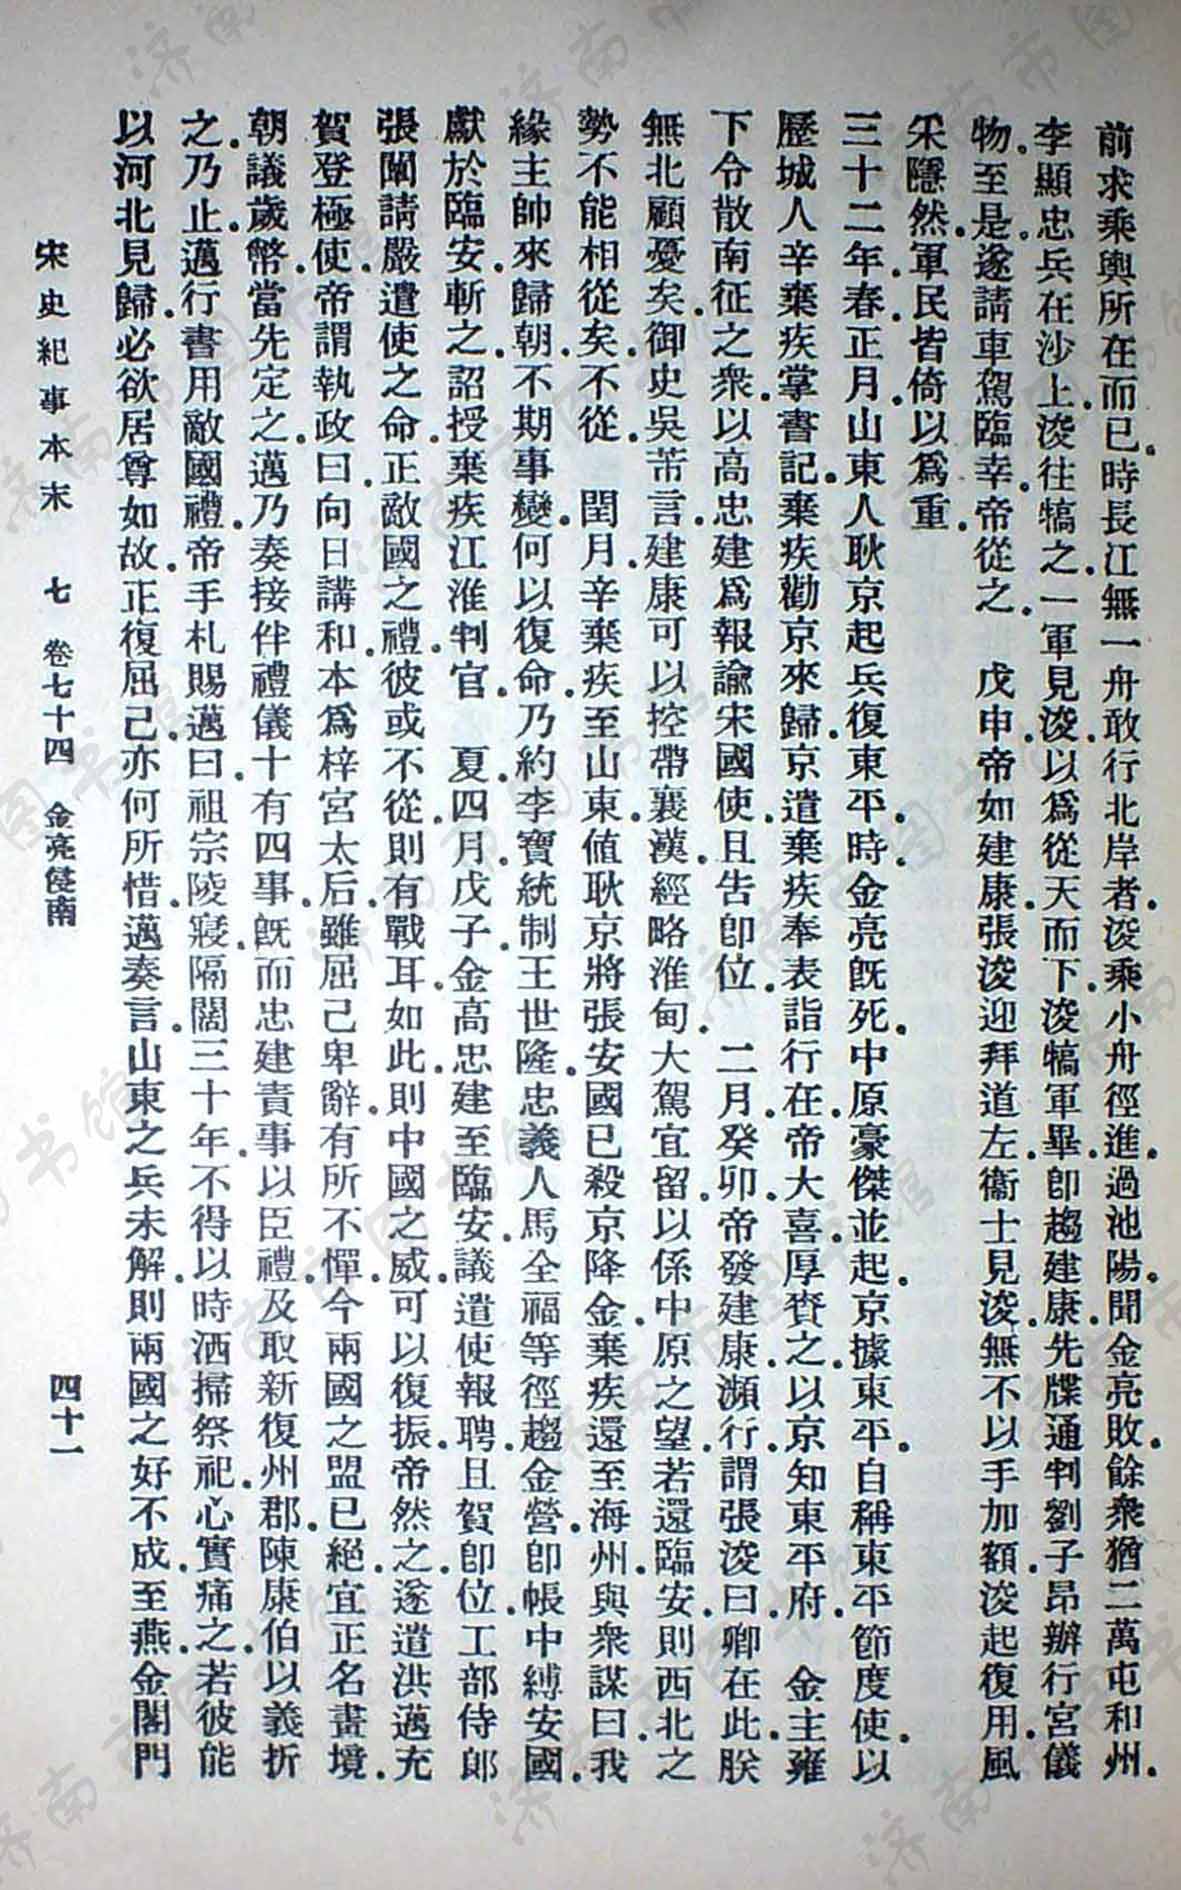 前求乘輿所在而已時長江無一舟敢行北岸者浚乘小舟徑進過池陽聞金亮敗餘衆猶二萬屯和州
李顯忠兵在沙上浚往犒之一軍見浚以爲從天而下浚犒軍畢卽趨建康先牒通判劉子昂辦行宮儀
物至是遂請車駕臨幸帝從之　戊申帝如建康張浚迎拜道左衞士見浚無不以手加額浚起復用風
釆隱然軍民皆倚以爲重
三十二年春正月山東人耿京起兵復東平時金亮旣死中原豪傑並起京據東平自稱東平節度使以
歷城人辛棄疾掌書記棄疾勸京來歸京遣棄疾奉表詣行在帝大喜厚賚之以京知東平府　金主雍
下令散南征之衆以高忠建爲報諭宋國使且告卽位　二月癸卯帝發建康瀕行謂張浚曰卿在此朕
無北顧憂矣御史吳芾言建康可以控帶襄漢經略淮甸大駕宜留以係中原之望若還臨安則西北之
勢不能相從矣不從　閏月辛棄疾至山東値耿京將張安國已殺京降金棄疾還至海州與衆謀曰我
緣主帥來歸朝不期事變何以復命乃約李寶統制王世隆忠義人馬全福等徑趨金營卽帳中縛安國
獻於臨安斬之詔授棄疾江淮判官　夏四月戊子金高忠建至臨安議遣使報聘且賀卽位工部侍郎
張闡請嚴遣使之命正敵國之禮彼或不從則有戰耳如此則中國之威可以復振帝然之遂遣洪邁充
賀登極使帝謂執政曰向日講和本爲梓宮太后雖屈己卑辭有所不憚今兩國之盟已絕宜正名畫境
朝議歲幣當先定之邁乃奏接伴禮儀十有四事旣而忠建責事以臣禮及取新復州郡陳康伯以義折
之乃止邁行書用敵國禮帝手札賜邁曰祖宗陵寢隔闊三十年不得以時洒掃祭祀心實痛之若彼能
以河北見歸必欲居尊如故正復屈己亦何所惜邁奏言山東之兵未解則兩國之好不成至燕金閤門
宋史紀事本末　七　卷七十四　金亮侵南　四十一